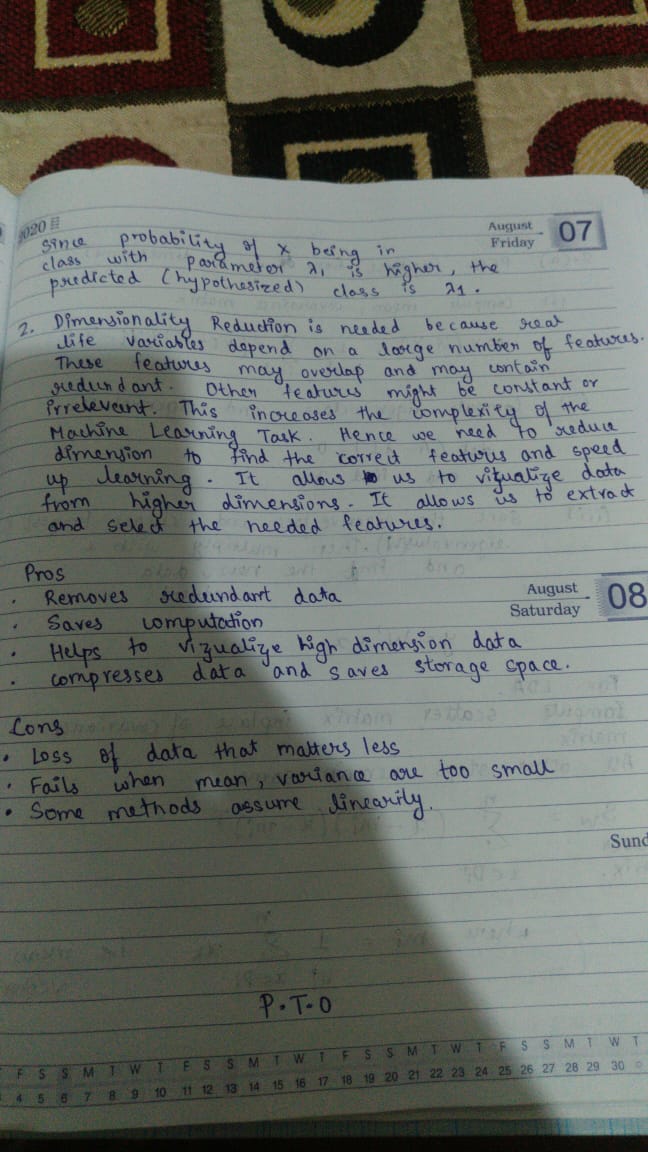 2020
August
Friday
07
Since probability of x being in
class with parameter λ1 is higher, the
predicted (hypothesized) class is λ1.
2. Dimensionality Reduction is needed because real
life variables depend on a large number of features.
These features may overlap and may contain
redundant. Other features might be constant or
irrelevant. This increases the complexity of the
Machine Learning Task. Hence we need to reduce
dimension to find the correct features and speed
up learning. It allows us to vizualize data
from higher dimensions. It allows us to extract
and select the needed features.
Pros
August
Saturday
08
• Removes redundant data
• Saves computation
• Helps to vizualize high dimension data
• compresses data and saves storage space.
Cons
• Loss of data that matters less
• Fails when mean, variance are too small
• Some methods assume linearily.
Sund
P.T.O
F S S M T W T F S S M T W T F S S M T W T F S S M T W T
4 5 6 7 8 9 10 11 12 13 14 15 16 17 18 19 20 21 22 23 24 25 26 27 28 29 30